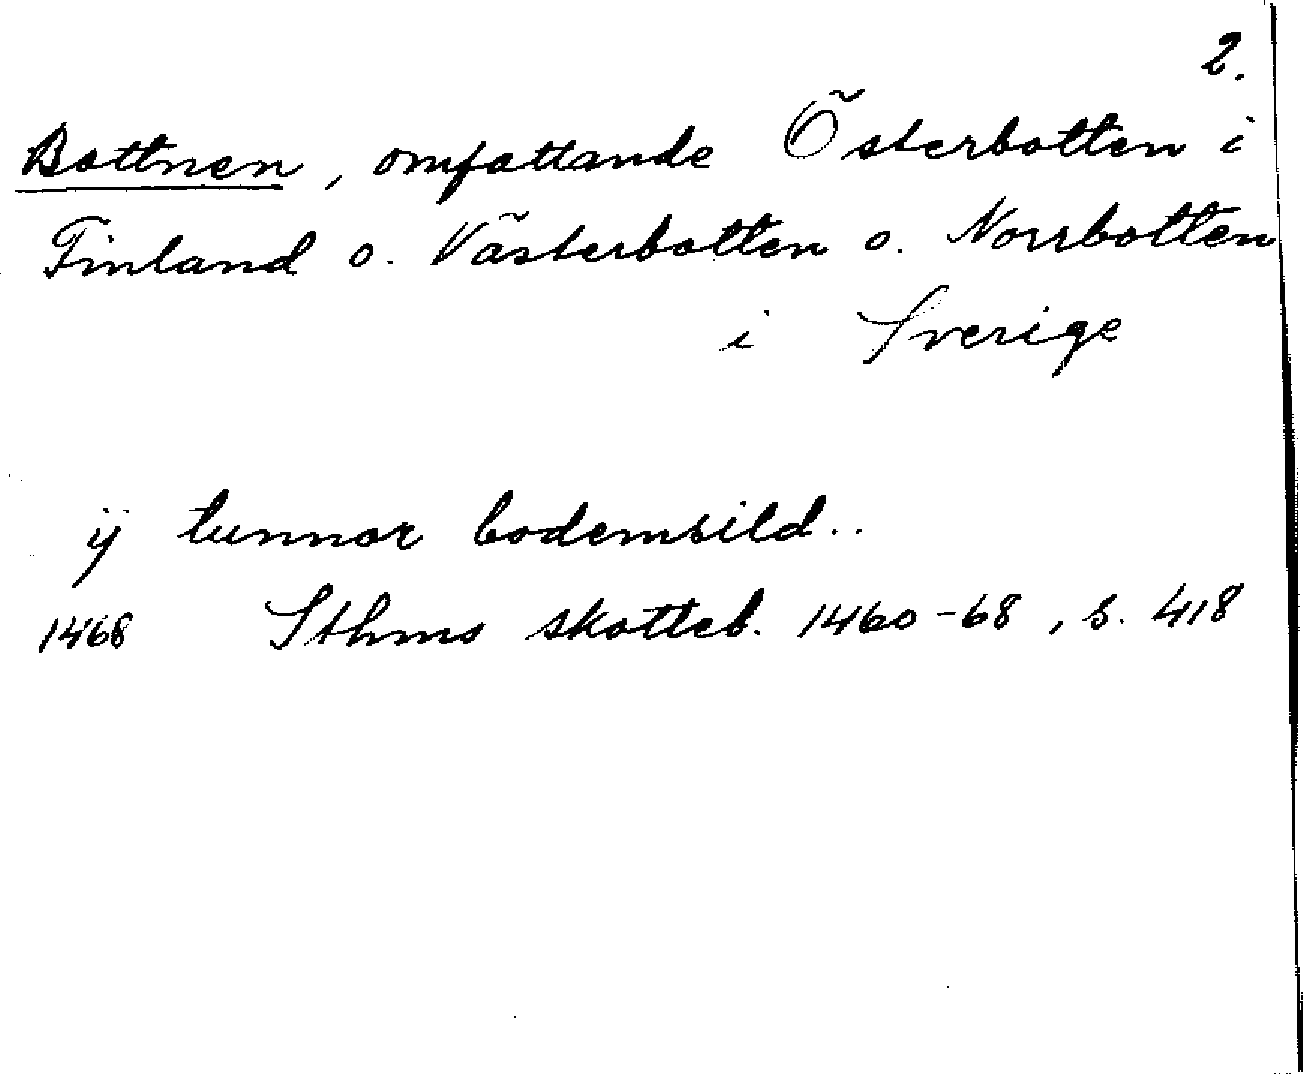 2.
Bottnen, omfattande Österbotten i
Finland o. Västerbotten o. Norrbotten
i Sverige
ij tunnor bodemsild..
1468 Sthms skotteb. 1460-68, s. 418